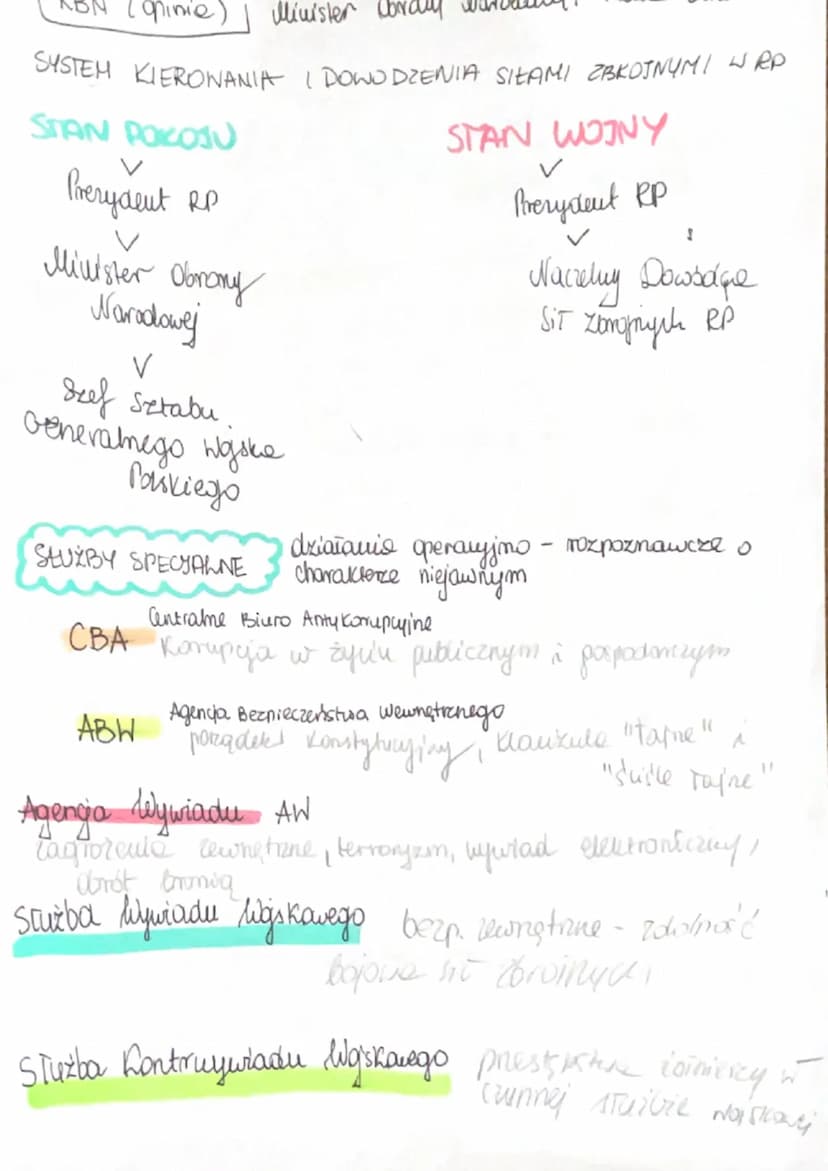 RBN (opinie) Minister Obrony
SYSTEM KIEROWANIA I DOWODZENIA SIŁAMI ZBROJNYMI W RP
STAN POKOJU
Prezydent RP
Minister Obrony
Narodowej
Szef Sztabu
Generalnego Wojska
Polskiego
STAN WOJNY
Prezydent RP
Naczelny Dowódca
Sił Zbrojnych RP
SŁUŻBY SPECJALNE
działania operacyjno - rozpoznawcze o
charakterze niejawnym
Centralne Biuro Antykorupcyjne
CBA Korupcja w życiu publicznym i gospodarczym
Agencja Bezpieczeństwa Wewnętrznego
ABW porządek konstytucyjny, klauzule "tajne" i
"ściśle tajne"
Agencja Wywiadu AW
zagrożenia zewnętrzne, terroryzm, wywiad elektroniczny,
obrót bronią
Służba Wywiadu Wojskowego bezp. zewnętrzne - zdolność
bojowa sił zbrojnych
Służba Kontrwywiadu Wojskowego przestępstwa żołnierzy w
czynnej służbie wojskowej